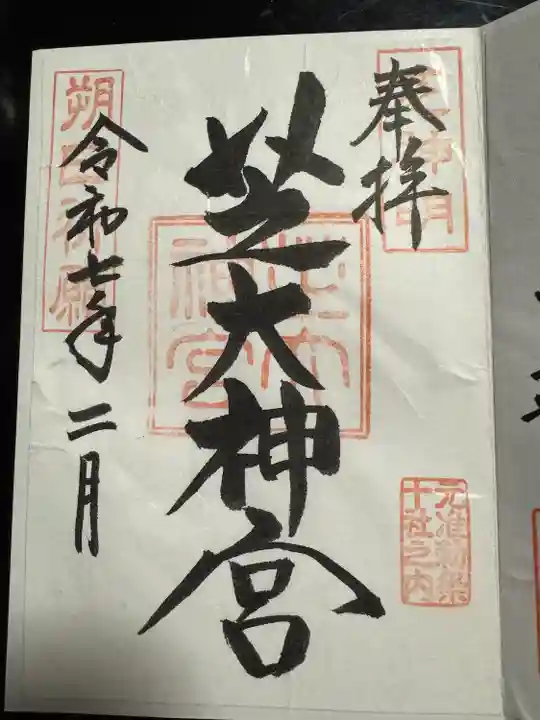 奉拝
元神明
芝大神宮
芝大神宮
元准勅祭
十社之内
朔日祈願
令和七年二月